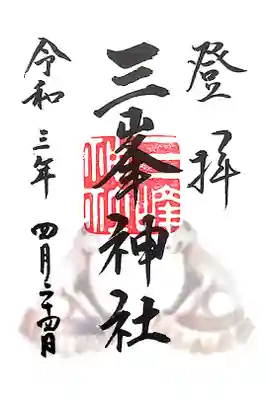 登拝
三峯神社
令和三年 四月二十四日